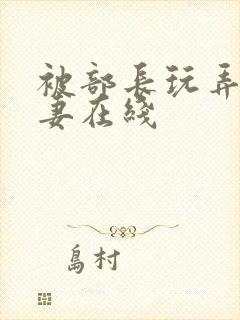 被部长玩弄
妻在线
島村